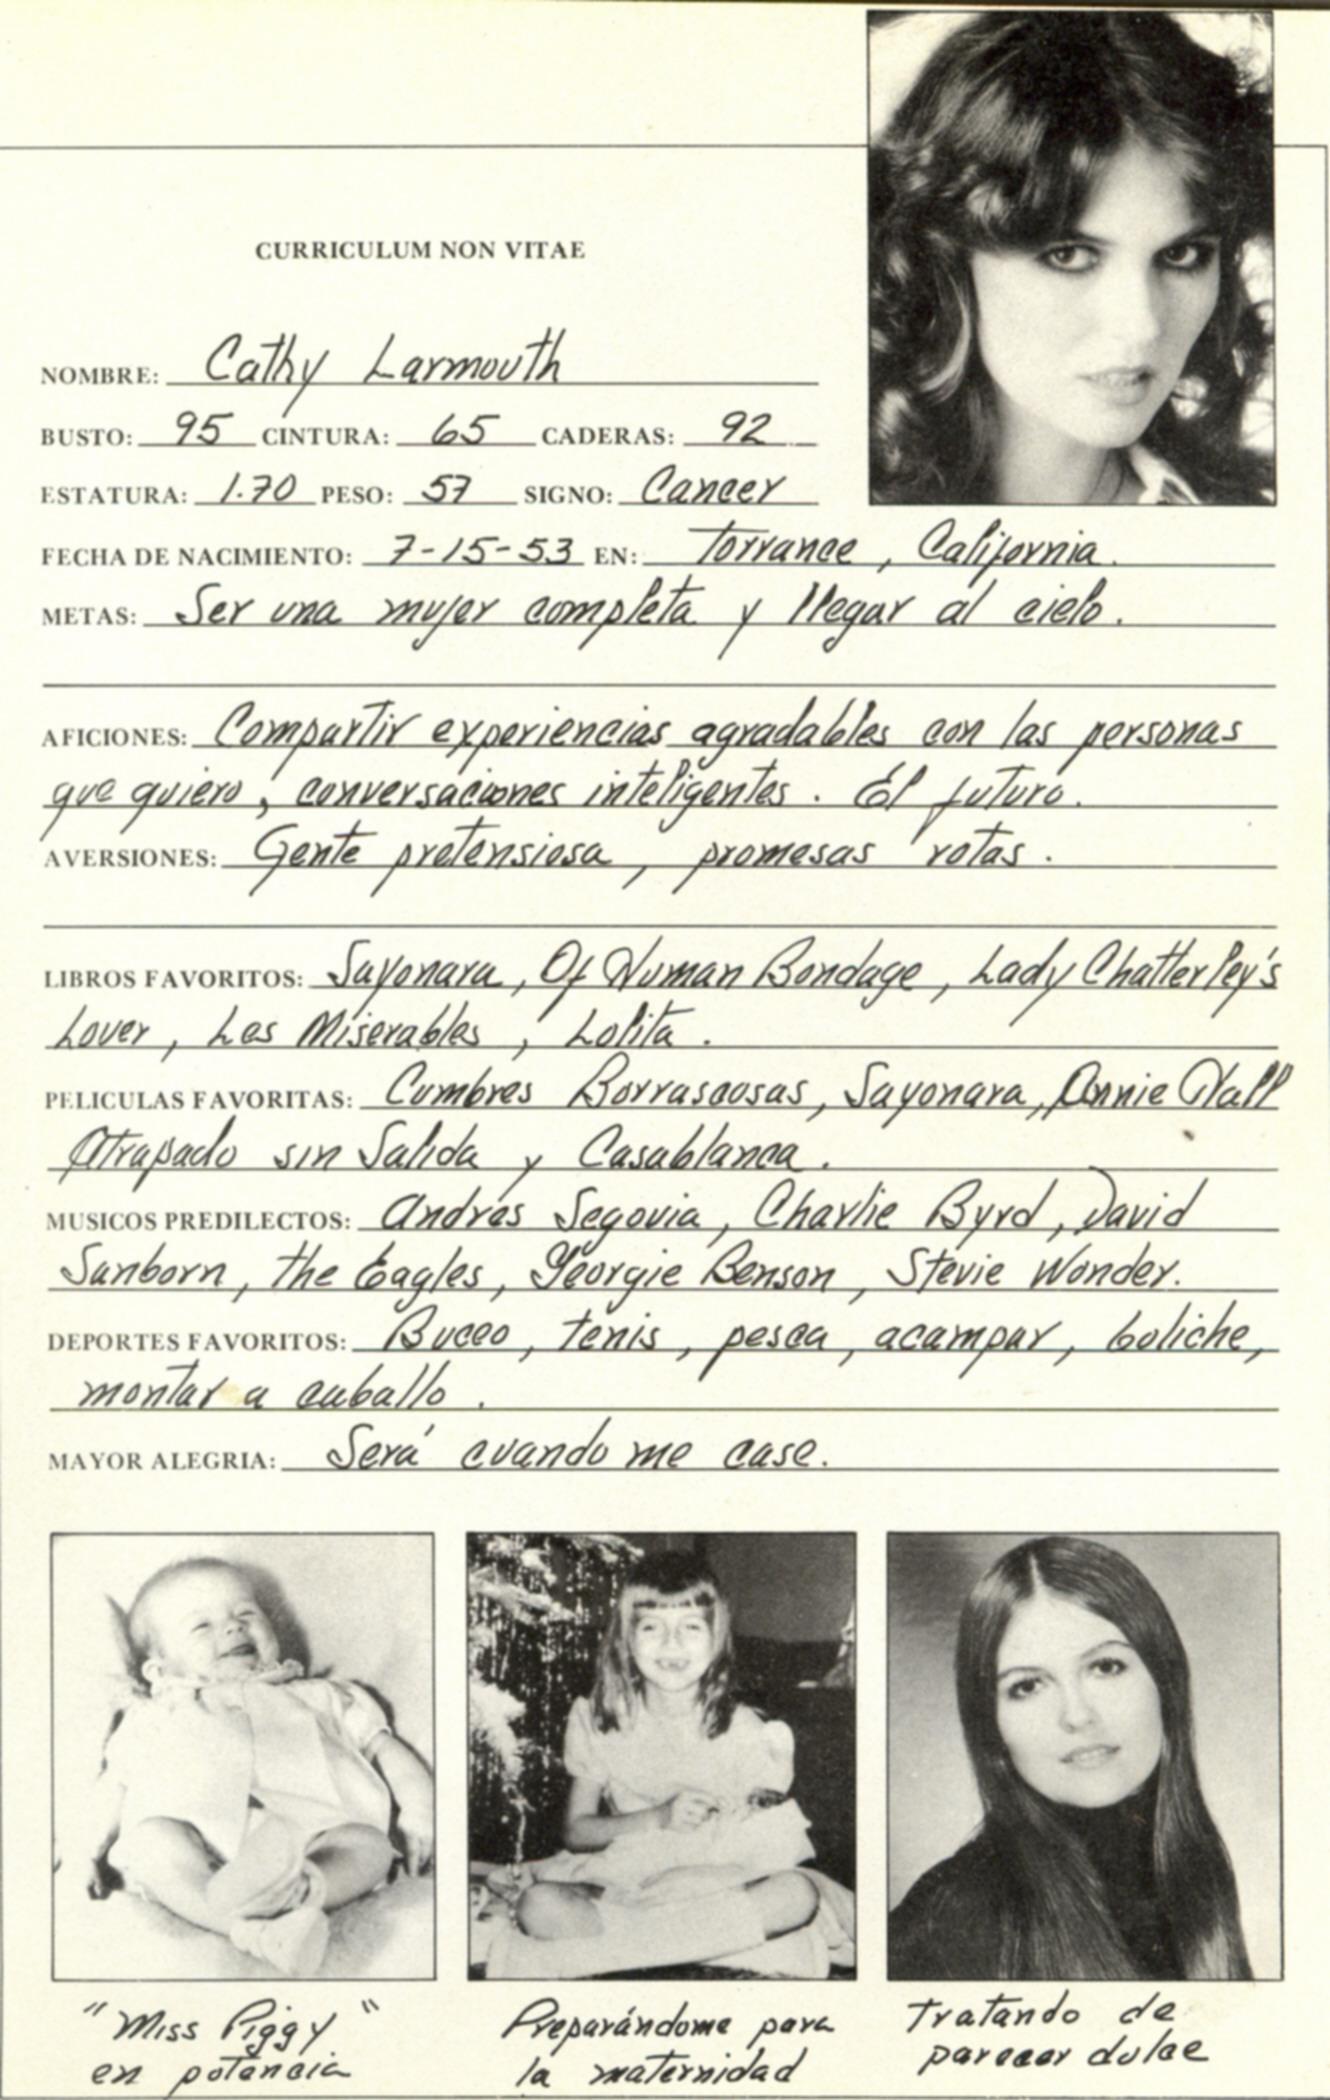 CURRICULUM NON VITAE
NOMBRE: Cathy Larmouth
BUSTO: 95 CINTURA: 65 CADERAS: 92
ESTATURA: 1.70 PESO: 57 SIGNO: Cancer
FECHA DE NACIMIENTO: 7-15-53 EN: Torrance, California.
METAS: Ser una mujer completa y llegar al cielo.
AFICIONES: Compartir experiencias agradables con las personas
que quiero, conversaciones inteligentes. El futuro.
AVERSIONES: Gente pretensiosa, promesas rotas.
LIBROS FAVORITOS: Sayonara, Of Human Bondage, Lady Chatterley's
Lover, Les Miserables, Lolita.
PELICULAS FAVORITAS: Cumbres Borrascosas, Sayonara, Annie Hall
Atrapado sin Salida y Casablanca.
MUSICOS PREDILECTOS: Andrés Segovia, Charlie Byrd, David
Sanborn, the Eagles, Georgie Benson, Stevie Wonder.
DEPORTES FAVORITOS: Buceo, tenis, pesca, acampar, boliche,
montar a caballo.
MAYOR ALEGRIA: Será cuando me case.
"Miss Piggy"
en potencia
Preparándome para
la maternidad
Tratando de
parecer dulce